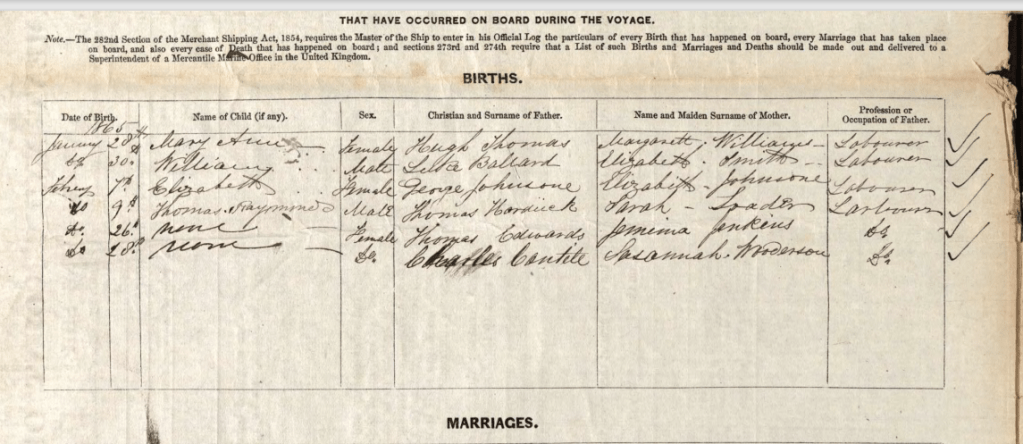 THAT HAVE OCCURRED ON BOARD DURING THE VOYAGE.
Note.—The 282nd Section of the Merchant Shipping Act, 1854, requires the Master of the Ship to enter in his Official Log the particulars of every Birth that has happened on board, every Marriage that has taken place
on board, and also every case of Death that has happened on board; and sections 273rd and 274th require that a List of such Births and Marriages and Deaths should be made out and delivered to a
Superintendent of a Mercantile Marine Office in the United Kingdom.
BIRTHS.
Date of Birth. Name of Child (if any). Sex. Christian and Surname of Father. Name and Maiden Surname of Mother. Profession or
Occupation of Father.
1865
28th Mary Ann Female Hugh Thomas Margaret Williams Labourer
Do 30. William Male Ballard Elizabeth Smith Labourer
7th Elizabeth Female George Johnsone Elizabeth - Johnsone Labourer
Do 9th Thomas Male Thomas Sarah - Loader Larbourer
Do. 26th none Female Thomas Edwards Jemima Jenkins Do
Do 28th none Do. Charles Cantile Susannah. Wooderson Do.
MARRIAGES.